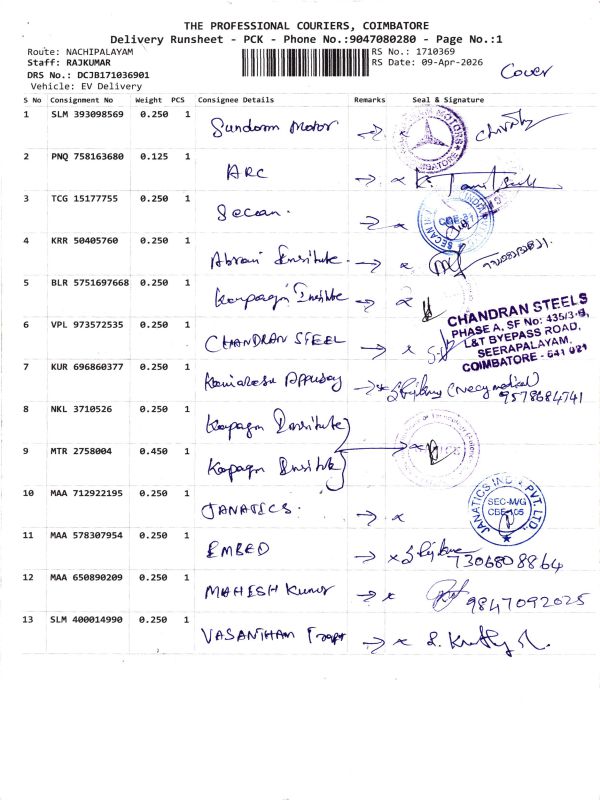 THE PROFESSIONAL COURIERS, COIMBATORE
Delivery Runsheet - PCK - Phone No.:9047080280 - Page No.:1
Route: NACHIPALAYAM
RS No.: 1710369
Staff: RAJKUMAR
RS Date: 09-Apr-2026
DRS No.: DCJB171036901
Cover
Vehicle: EV Delivery
S No Consignment No Weight PCS Consignee Details Remarks Seal & Signature
1 SLM 393098569 0.250 1 Sundaram Motor
MOTORS
2 PNQ 758163680 0.125 1 ARC
3 TCG 15177755 0.250 1 Secan.
4 KRR 50405760 0.250 1
5 BLR 5751697668 0.250 1
CHANDRAN STEELS
PHASE A, SF No: 435/3-B,
L&T BYEPASS ROAD,
SEERAPALAYAM,
COIMBATORE - 641 021
6 VPL 973572535 0.250 1 CHANDRAN STEEL
7 KUR 696860377 0.250 1
9578684741
8 NKL 3710526 0.250 1
9 MTR 2758004 0.450 1
10 MAA 712922195 0.250 1 JANATICS.
JANATICS INDIA PVT. LTD.
SEC-M/G
CBE-105
11 MAA 578307954 0.250 1 EMBED
7306808864
12 MAA 650890209 0.250 1 MAHESH Kumar
9847092025
13 SLM 400014990 0.250 1 VASANTHAM